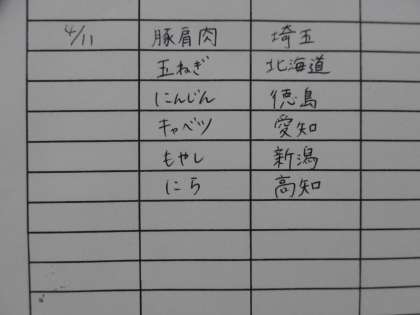 4/11 豚肩肉 埼玉
玉ねぎ 北海道
にんじん 徳島
キャベツ 愛知
もやし 新潟
にら 高知